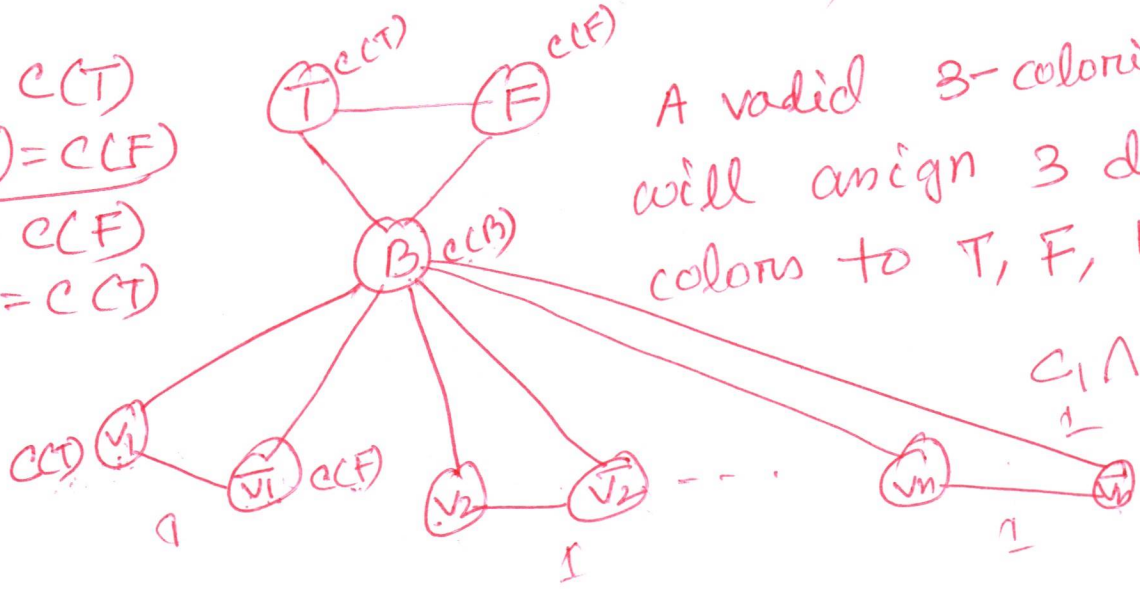 C(T)
)=C(F)
C(F)
=C(T)
T C(T)
F C(F)
B C(B)
A valid 3-colori
will assign 3 d
colors to T, F,
C₁ ∧
1
C(T) V₁
V̅₁ C(F)
V₂
V̅₂
- - - .
Vn
V̅n
1
1